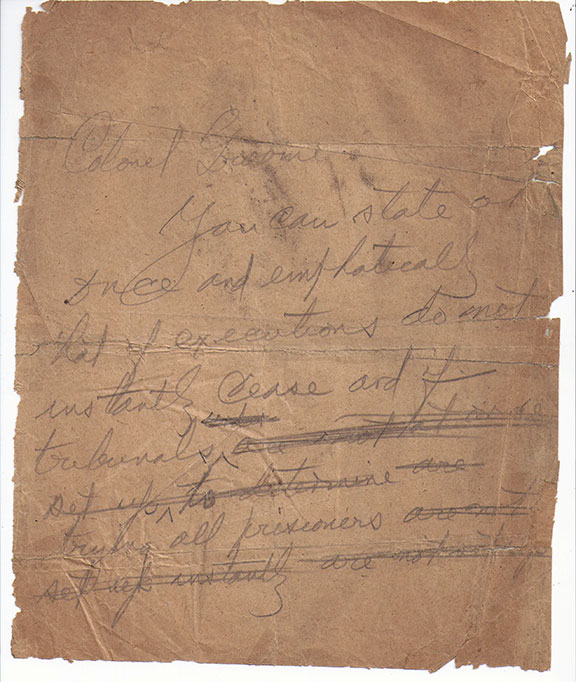 Colonel Giacome
You can state at
once and emphatically
that if executions do not
instantly cease and if
tribunals, are not at once
set up, to determine are
trying all prisioners are not
set up instantly are not